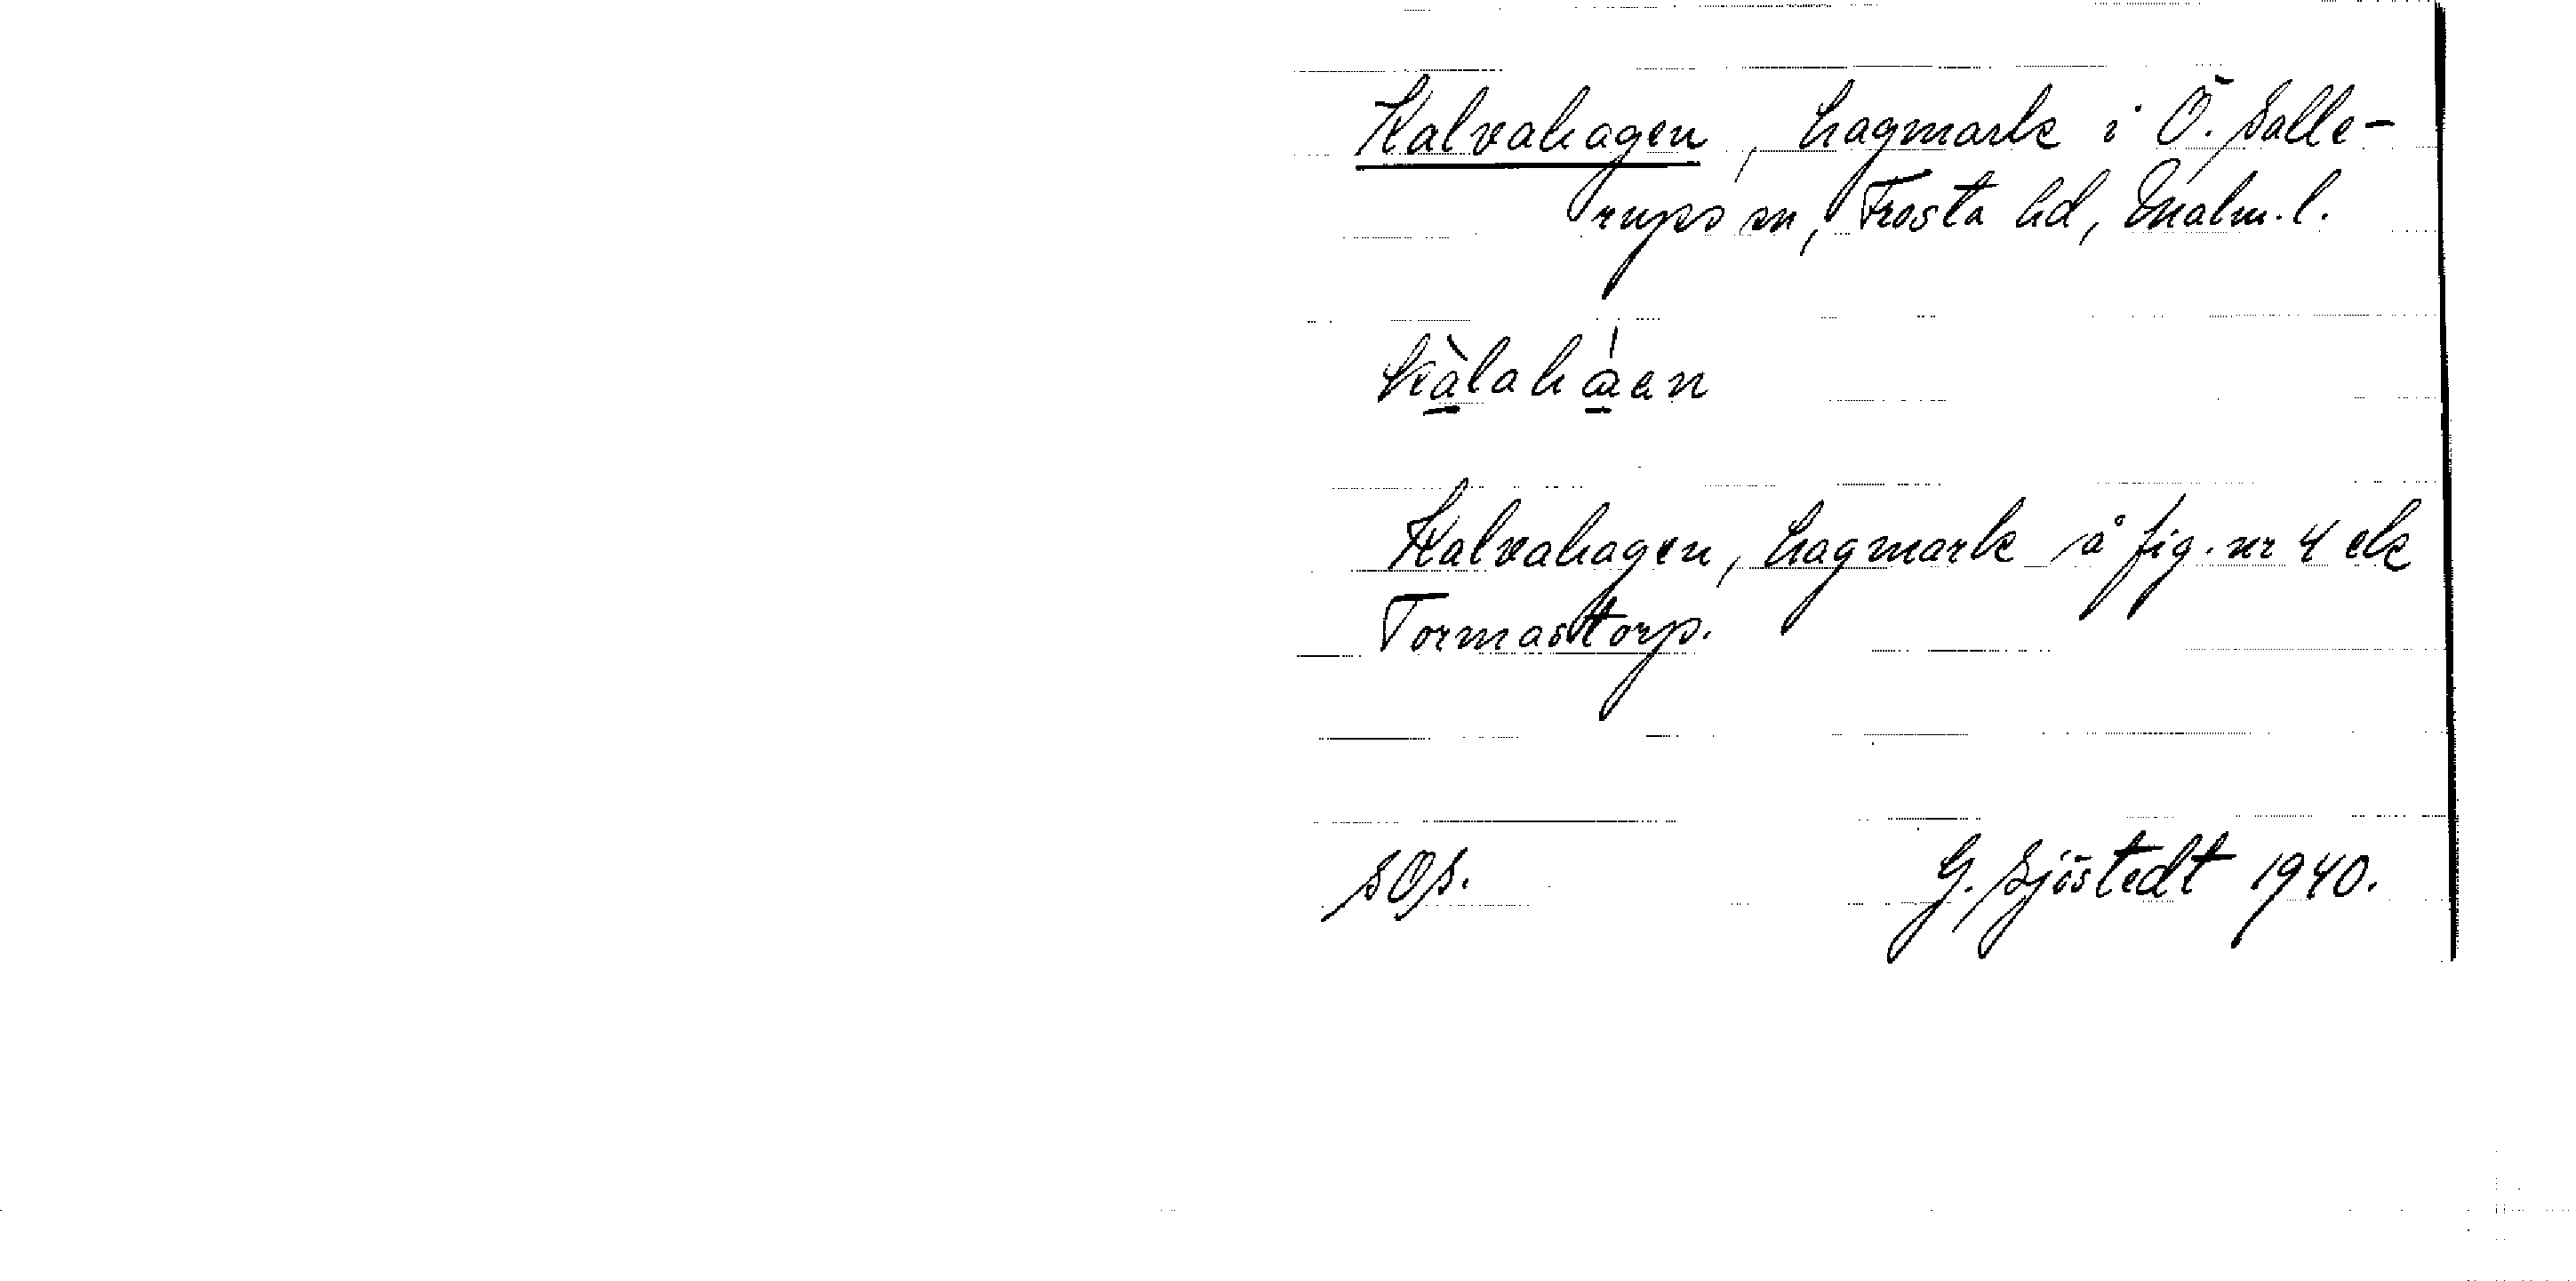 Kalvahagen, hagmark i Ö. Salle-
rups sn, Frosta hd, Malm.l.
kàlahåen
Kalvahagen, hagmark på fig. nr 4 ek
Tormastorp.
SOS. G. Sjöstedt 1940.